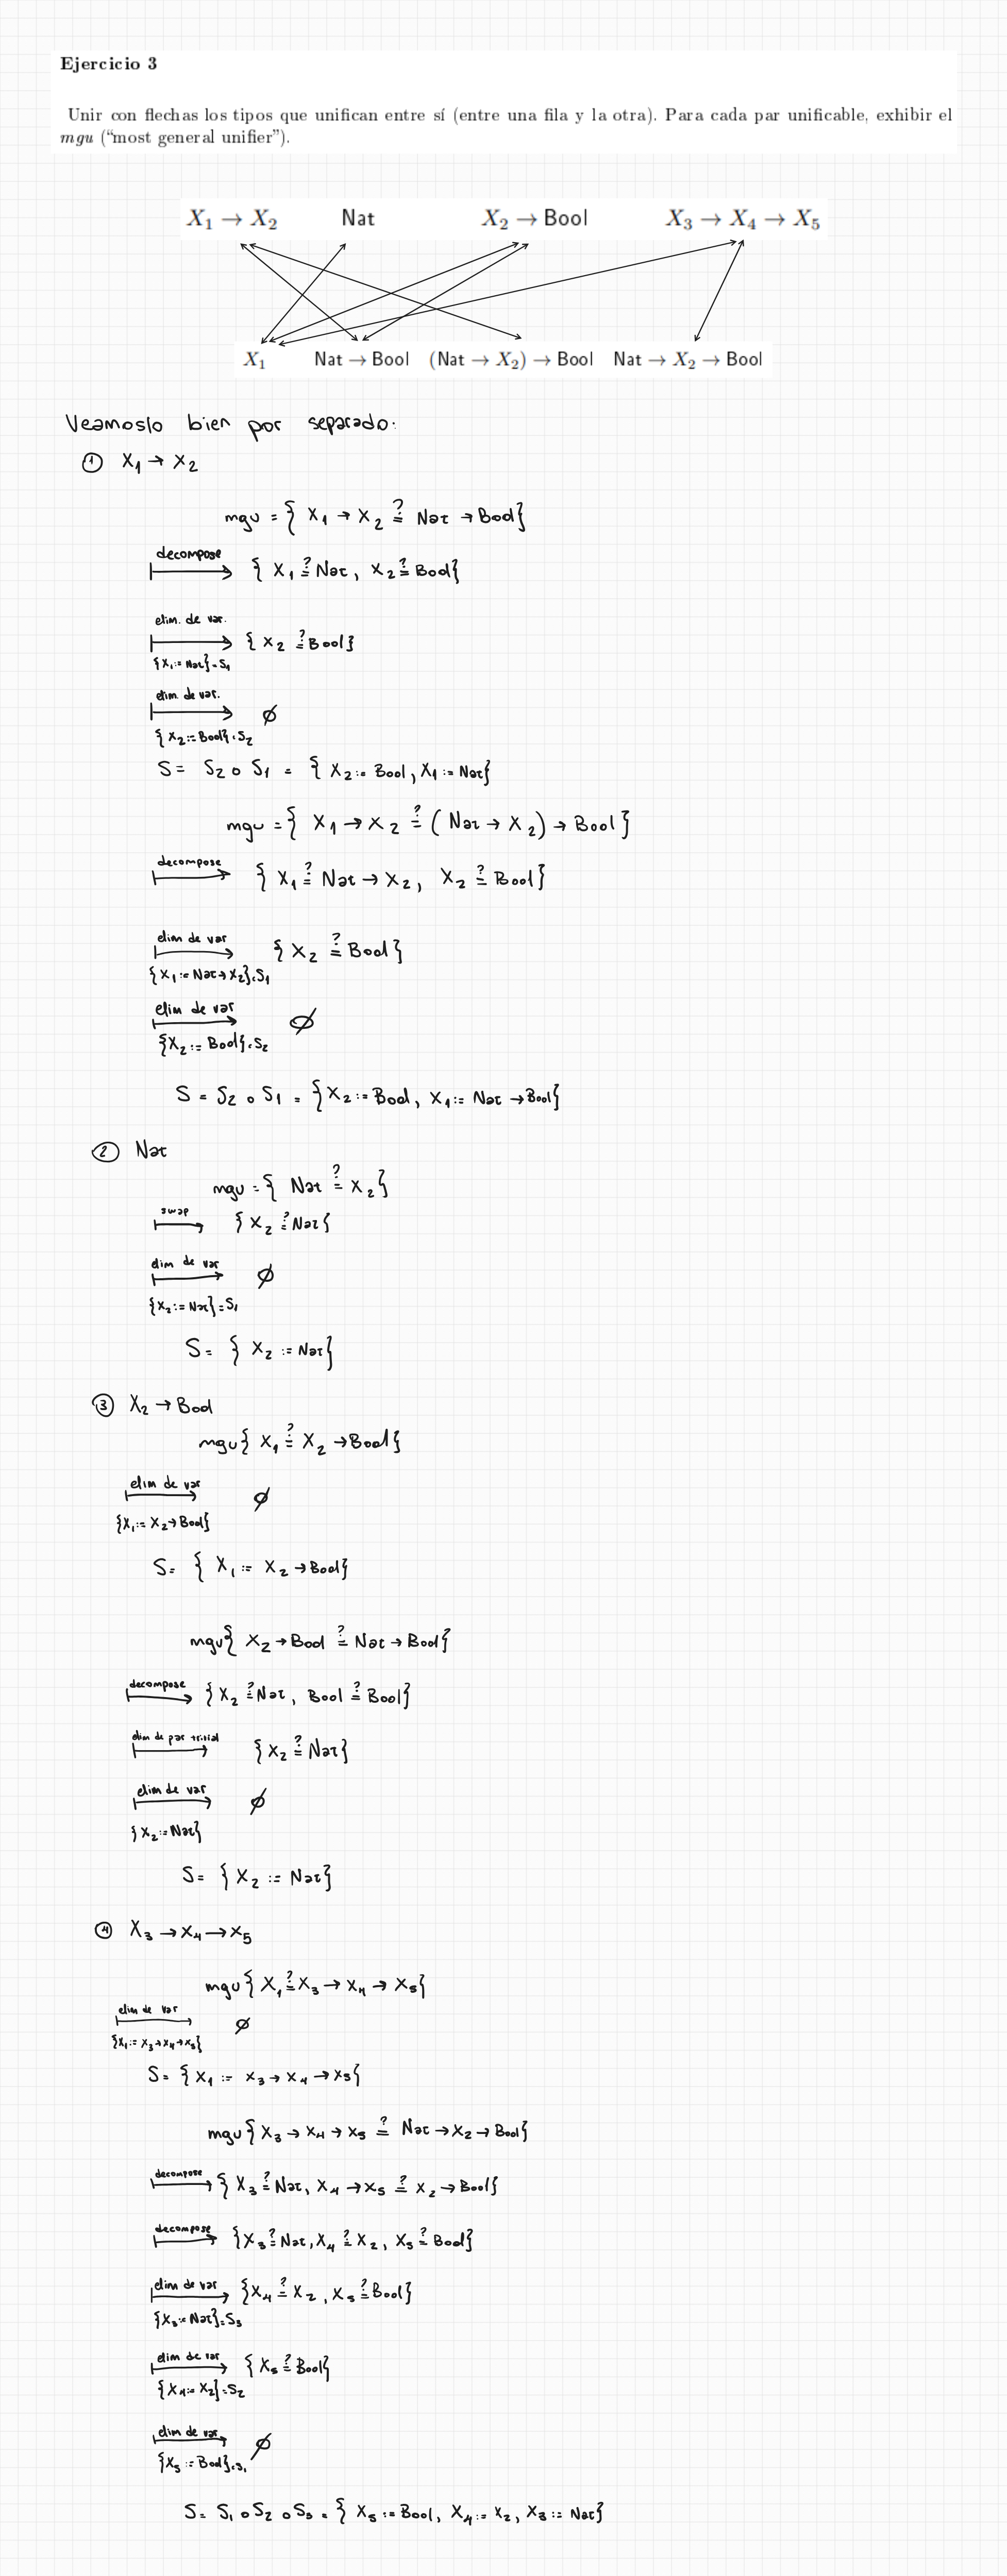 Ejercicio 3
Unir con flechas los tipos que unifican entre sí (entre una fila y la otra). Para cada par unificable, exhibir el
mgu (“most general unifier”).
X₁ → X₂ Nat X₂ → Bool X₃ → X₄ → X₅
X₁ Nat → Bool (Nat → X₂) → Bool Nat → X₂ → Bool
Veamoslo bien por separado:
① X₁ → X₂
mgu = { X₁ → X₂ ≟ Nat → Bool}
decompose { X₁ ≟ Nat, X₂ ≟ Bool}
elim. de var.
{ X₂ ≟ Bool}
{X₁ := Nat} = S₁
elim. de var.
∅
{ X₂ := Bool} = S₂
S = S₂ ∘ S₁ = { X₂ := Bool, X₁ := Nat}
mgu = { X₁ → X₂ ≟ ( Nat → X₂) → Bool }
decompose { X₁ ≟ Nat → X₂, X₂ ≟ Bool}
elim de var { X₂ ≟ Bool }
{X₁ := Nat → X₂} = S₁
elim de var ∅
{X₂ := Bool} = S₂
S = S₂ ∘ S₁ = {X₂ := Bool, X₁ := Nat → Bool}
② Nat
mgu = { Nat ≟ X₂}
swap { X₂ ≟ Nat}
elim de var ∅
{X₂ := Nat} = S₁
S = { X₂ := Nat}
③ X₂ → Bool
mgu{ X₁ ≟ X₂ → Bool}
elim de var ∅
{X₁ := X₂ → Bool}
S = { X₁ := X₂ → Bool}
mgu{ X₂ → Bool ≟ Nat → Bool}
decompose { X₂ ≟ Nat, Bool ≟ Bool}
elim de par trivial { X₂ ≟ Nat}
elim de var ∅
{ X₂ := Nat}
S = { X₂ := Nat}
④ X₃ → X₄ → X₅
mgu{ X₁ ≟ X₃ → X₄ → X₅}
elim de var ∅
{X₁ := X₃ → X₄ → X₅}
S = { X₁ := X₃ → X₄ → X₅}
mgu{ X₃ → X₄ → X₅ ≟ Nat → X₂ → Bool}
decompose { X₃ ≟ Nat, X₄ → X₅ ≟ X₂ → Bool}
decompose {X₃ ≟ Nat, X₄ ≟ X₂, X₅ ≟ Bool}
elim de var {X₄ ≟ X₂, X₅ ≟ Bool}
{X₃ := Nat} = S₃
elim de var { X₅ ≟ Bool}
{X₄ := X₂} = S₂
elim de var ∅
{X₅ := Bool} = S₁
S = S₁ ∘ S₂ ∘ S₃ = { X₅ := Bool, X₄ := X₂, X₃ := Nat}